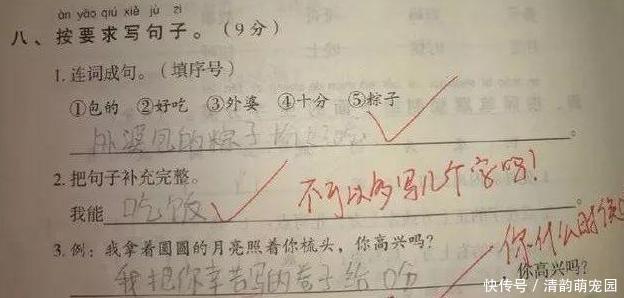 àn yāo qiú xiě jù zi
八、按要求写句子。（9分）
1. 连词成句。（填序号）
①包的 ②好吃 ③外婆 ④十分 ⑤粽子
外婆包的粽子
2. 把句子补充完整。
不可以多写几个字吗！
我能吃饭
3. 例：我拿着圆圆的月亮照着你梳头，你高兴吗？
你什么时候
我把你辛苦写的卷子给
，你高兴吗？
快传号 / 清韵萌宠园